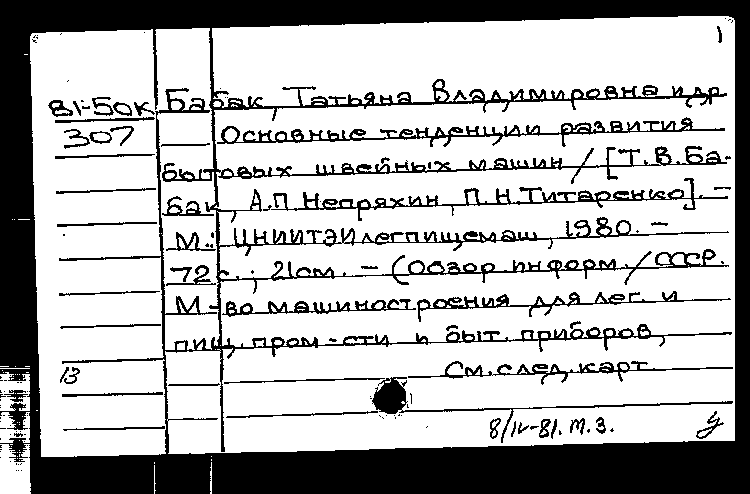 1
81-50K Бабак, Татьяна Владимировна и др
307 Основные тенденции развития
бытовых швейных машин / [Т.В.Ба-
бак, А.П.Непряхин, П.Н.Титаренко]. –
М.: ЦНИИТЭИлегпищемаш, 1980. –
72 с.; 21см. – (Обзор информ. / СССР.
М-во машиностроения для лег. и
пищ. пром-сти и быт. приборов,
13 См. след. карт.
8/IV-81. т.з.